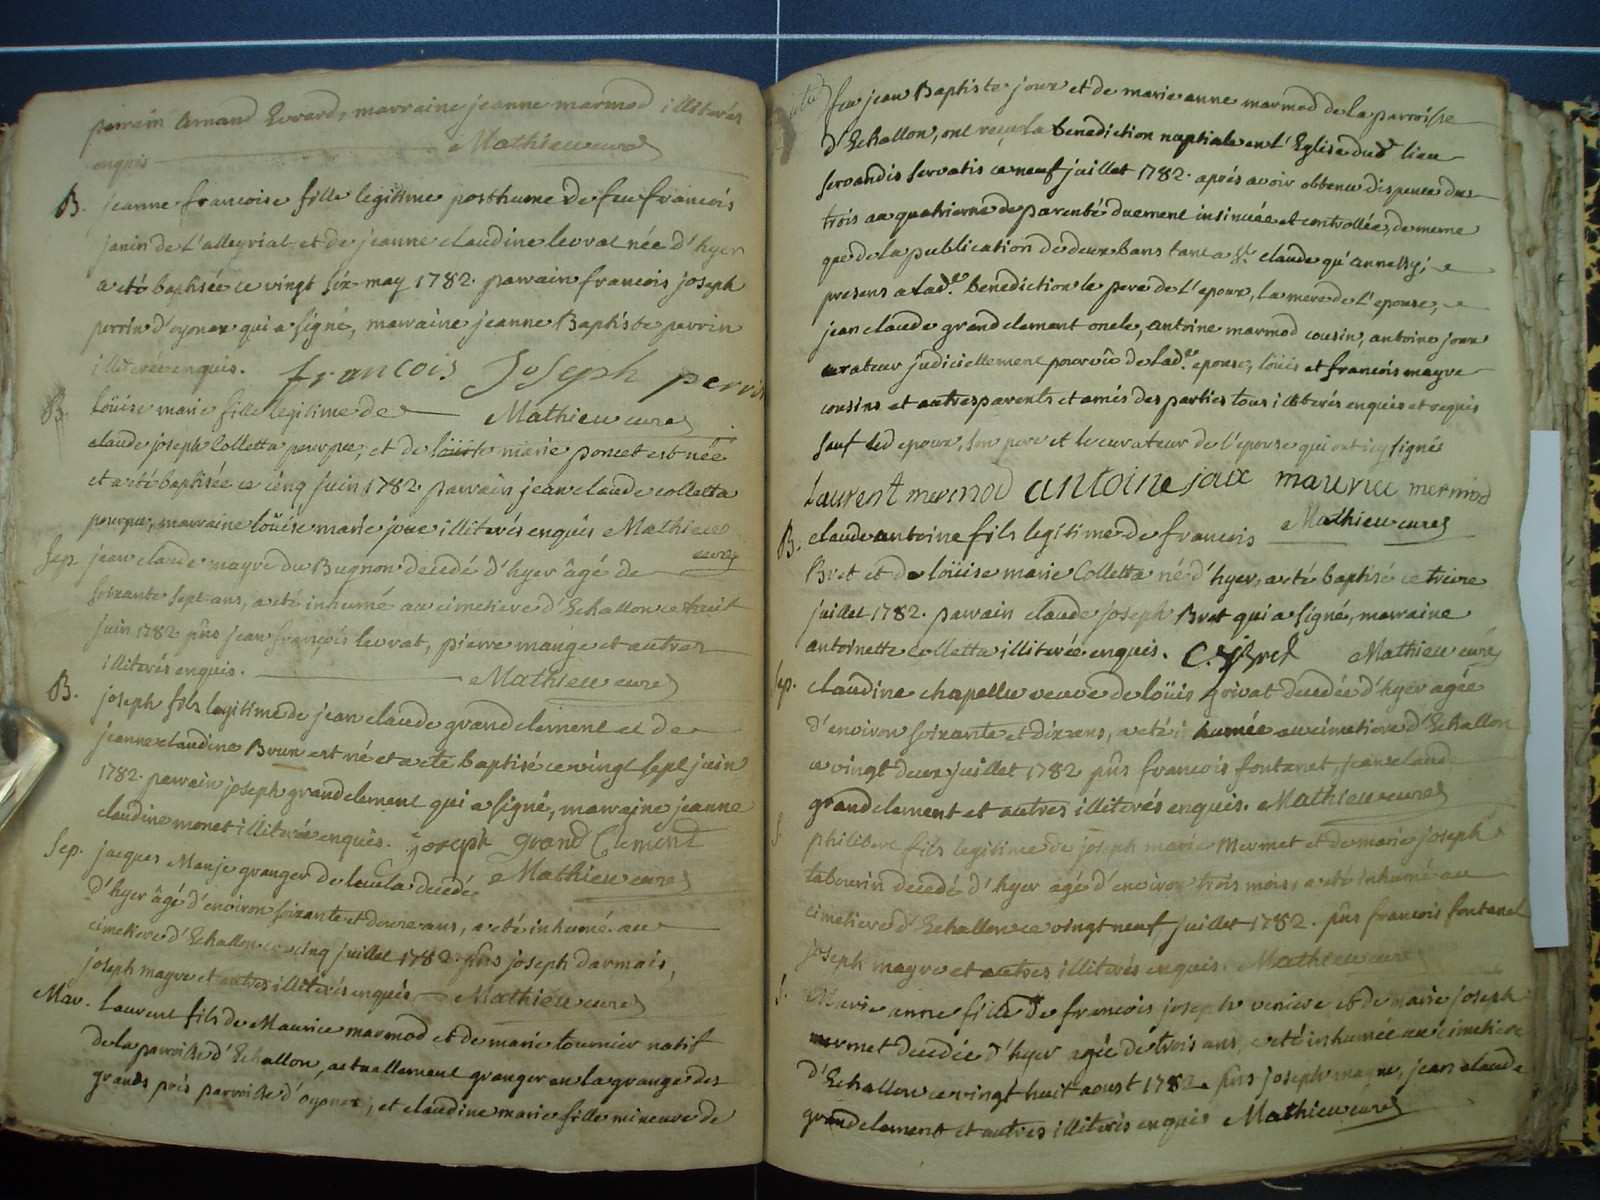 parrain Armand Evrard, marraine jeanne marmod illiterés
enquis Mathieu curé
B. jeanne francoise fille legitime posthume de feu francois
janin de L'alleyriat et de jeanne claudine levrat née d'hyer
a été baptisée ce vingt six may 1782. parrain francois joseph
perrin d'oyonax qui a signé, marraine jeanne Baptiste perrin
illiterée enquis. francois Joseph perrin
B. Loüise marie fille legitime de Mathieu curé
claude joseph Colletta pourpre, et de loüise marie poncet est née
et a été baptisée ce cinq juin 1782. parrain jean claude colletta
pourpre, marraine loüise marie joux illiterés enquis Mathieu
curé
Sep. jean claude mayre du Bugnon decedé d'hyer âgé de
soixante sept ans, a été inhumé au cimetiere d'Echallon ce huit
juin 1782 pñs jean francois levrat, pierre manige et autres
illiterés enquis. Mathieu curé
B. joseph fils legitime de jean claude grandclement et de
jeanne claudine Brun est né et a été baptisé ce vingt sept juin
1782. parrain joseph grandclement qui a signé, marraine jeanne
claudine monet illiterée enquis. joseph grand Clement
Sep. jacques Manje granger de decedé Mathieu curé
d'hyer âgé d'environ soixante et douze ans, a été inhumé au
cimetiere d'Echallon ce cinq juillet 1782. pñs joseph darmais,
joseph mayre et autres illiterés enquis Mathieu curé
Mar. Laurent fils de Maurice marmod et de marie tournier natif
de la parroisse d'Echallon, actuellement granger en la grange des
grands prés parroisse d'oyonax, et claudine marie fille mineure de
feu jean Baptiste joux et de marie anne marmod de la parroisse
d'Echallon, ont reçu la benediction nuptiale en l'Eglise dud. lieu
servandis servatis ce neuf juillet 1782. aprés avoir obtenu dispence du
trois au quatrieme de parenté duement insinuée et controllée, de meme
que de la publication de deux bans tant a St. claude qu'annessy;
presens a lad.e benediction le pere de l'epoux, la mere de l'epouse,
jean claude grandclement oncle, antoine marmod cousin, antoine joux
curateur judiciellement pourvû de lad.e epouse, loüis et francois mayre
cousins et autres parents et amis des parties tous illiterés enquis et requis
sauf led epoux, son pere et le curateur de l'epouse qui ont icy signés
Laurent mermod antoine joux maurice mermod
B. claude antoine fils legitime de francois Mathieu curé
Bret et de loüise marie Colletta né d'hyer, a été baptisé ce treize
juillet 1782. parrain claude joseph Bret qui a signé, marraine
antoinette colletta illiterée enquis. C. J. Bret Mathieu curé
Sep. claudine chapellu veuve de loüis privat decedée d'hyer agée
d'environ soixante et dix ans, a été inhumée au cimetiere d'Echallon
ce vingt deux juillet 1782 pñs francois fontanet, jean claude
grandclement et autres illiterés enquis. Mathieu curé
S. philibert fils legitime de joseph marie Mermet et de marie joseph
tabourin decedé d'hyer agé d'environ trois mois, a été inhumé au
cimetiere d'Echallon ce vingt neuf juillet 1782. pñs francois fontanet
joseph mayre et autres illiterés enquis. Mathieu curé
S. Marie anne fille de francois joseph veniere et de marie joseph
mermet decedée d'hyer agée de trois ans, a été inhumée au cimetiere
d'Echallon ce vingt huit aoust 1782. pñs joseph mayre, jean claude
grandclement et autres illiterés enquis Mathieu curé